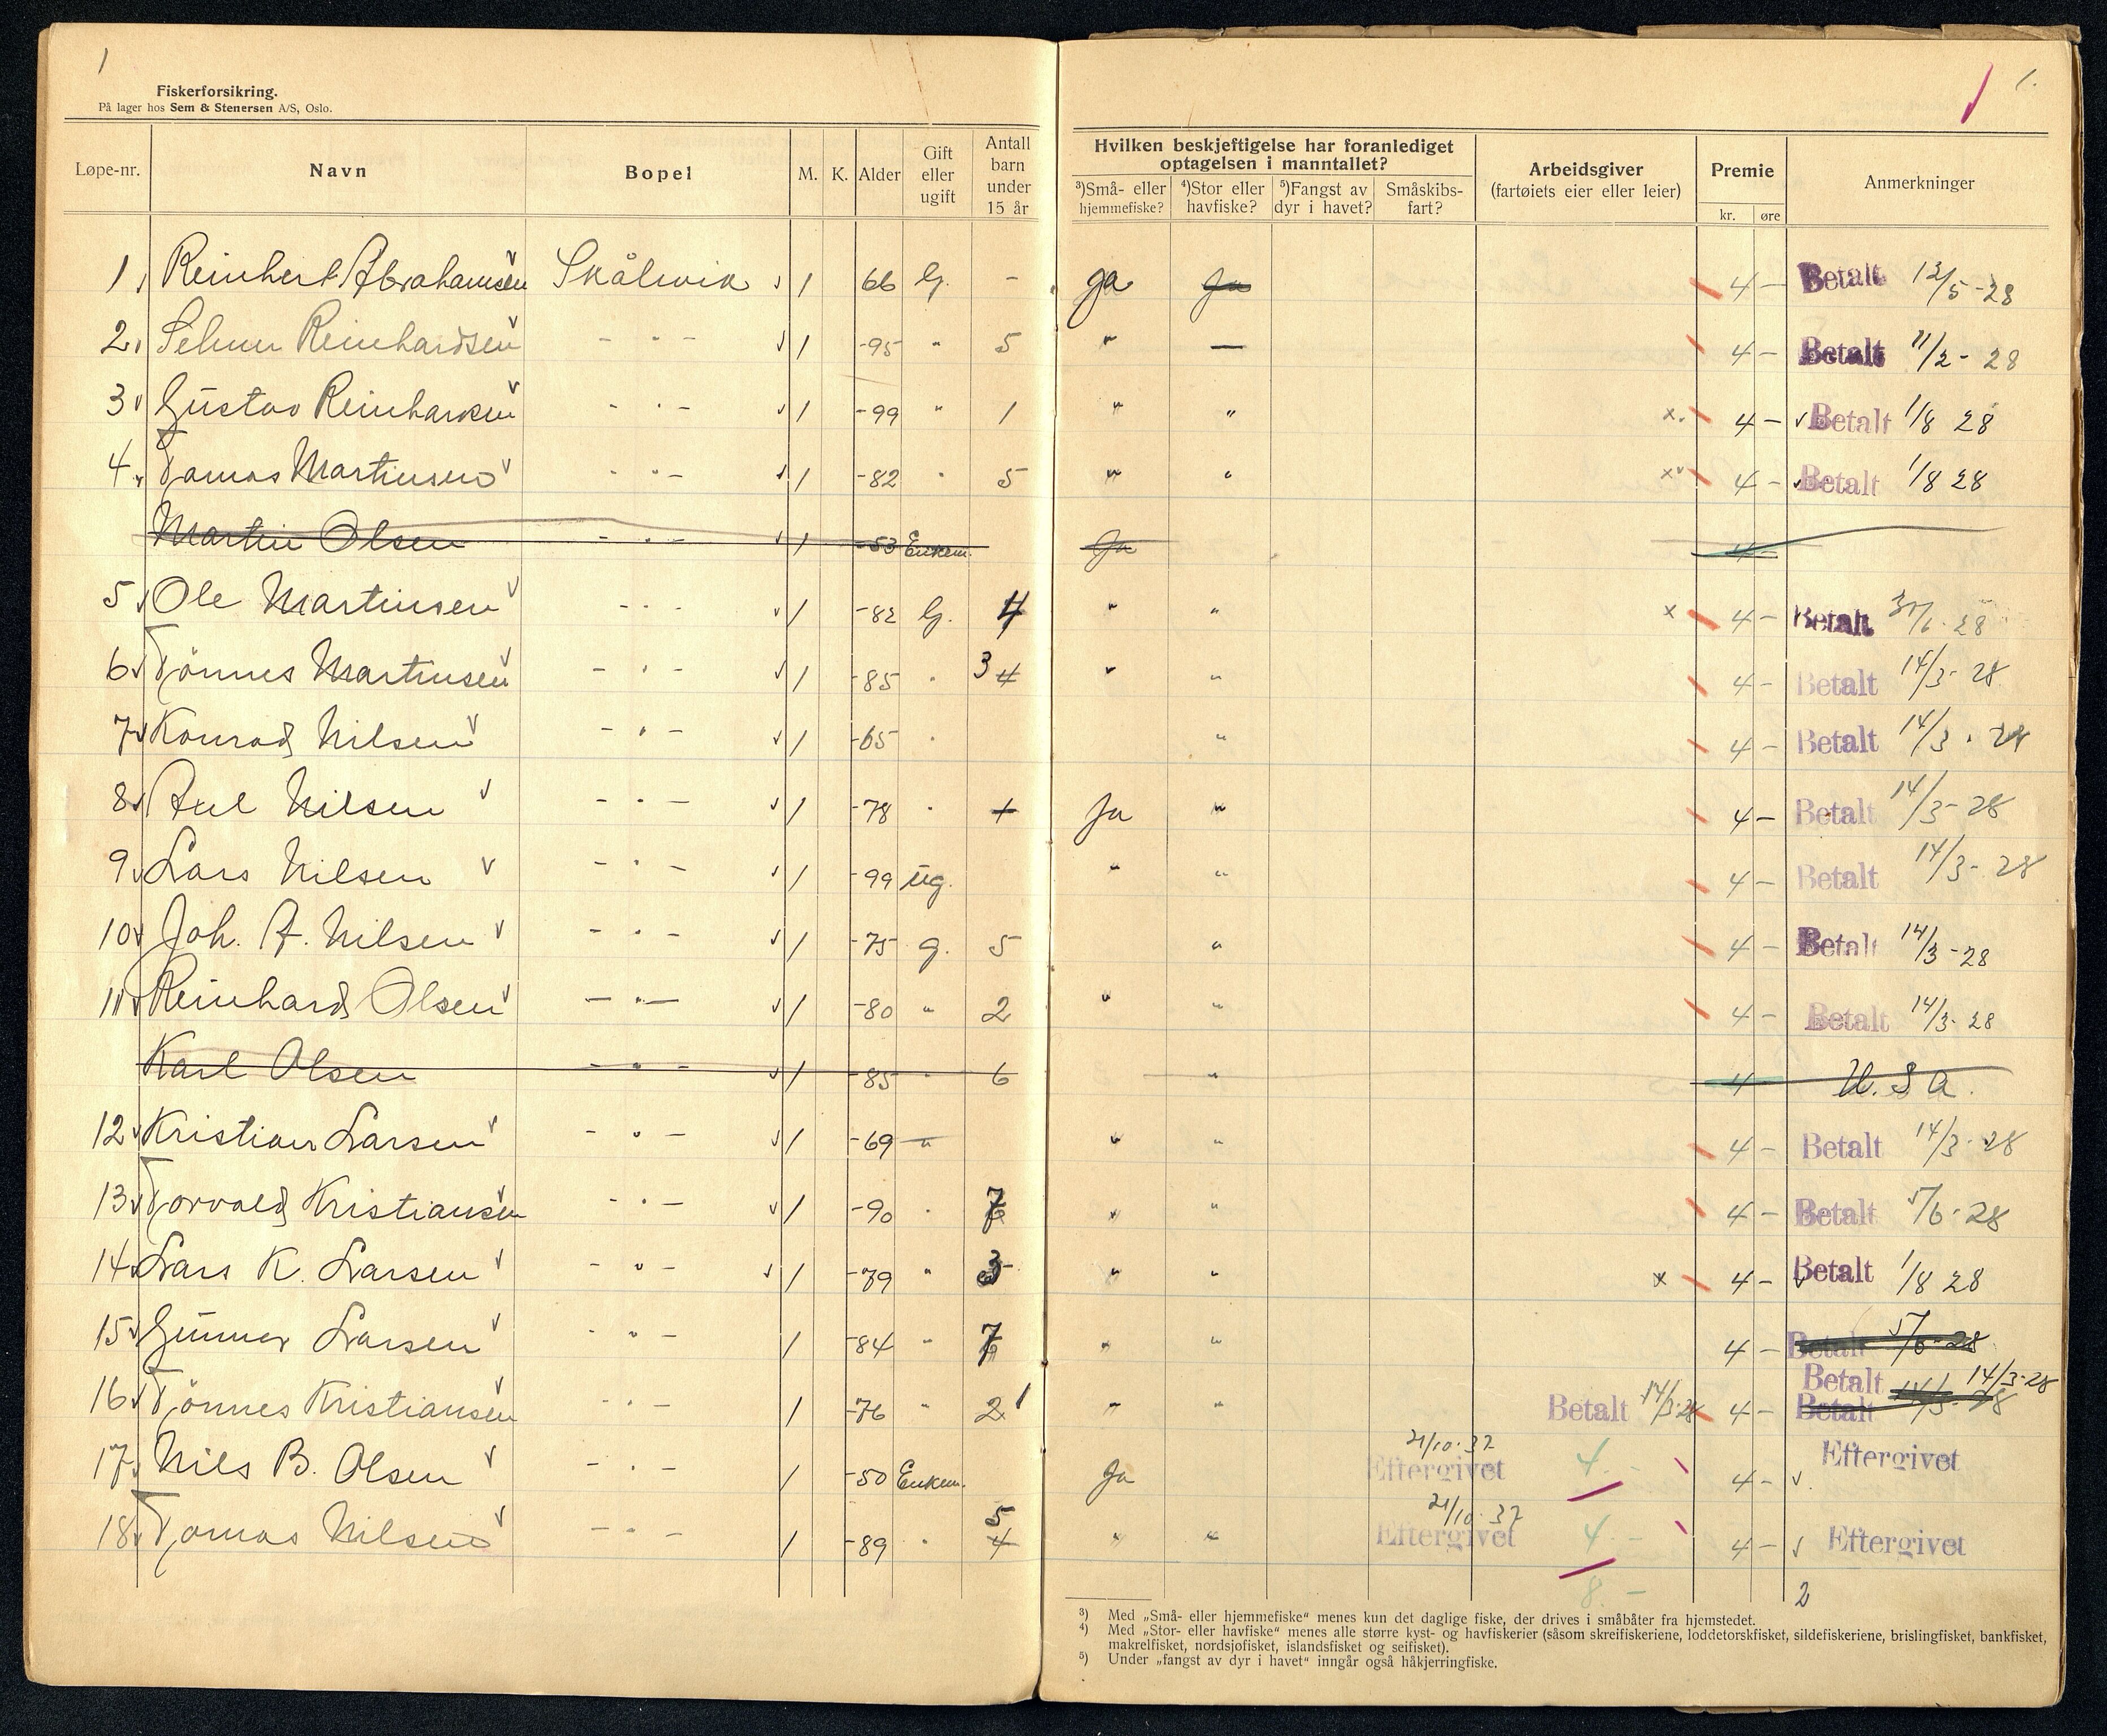 1
1.
Fiskerforsikring.
På lager hos Sem & Stenersen A/S, Oslo.
Løpe-nr. Navn Bopel M. K. Alder Gift eller ugift Antall barn under 15 år
Hvilken beskjeftigelse har foranlediget optagelsen i manntallet?
³)Små- eller hjemmefiske? ⁴)Stor eller havfiske? ⁵)Fangst av dyr i havet? Småskibs-fart?
Arbeidsgiver (fartøiets eier eller leier) Premie kr. øre Anmerkninger
1 Reinhert Abrahamsen Skålevik 1 66 G. - Ja Ja 4 - Betalt 12/5-28
2 Reinhardsen - " - 1 -95 " 5 " — 4 - Betalt 11/2-28
3 Gustav - " - 1 -99 " 1 " " x. 4 - Betalt 1/8 28
4 Tomas Martinsen - " - 1 -82 " 5 " " x 4 - Betalt 1/8 28
Martin Olsen - " - 1 -53 Enkem. Ja 4 -
5 Ole Martinsen - " - 1 -82 G. 4 " " x 4 - Betalt 28
6 Tönnes Martinsen - " - 1 -85 " 3 4 " " 4 - Betalt 14/3-28
7 Konrad Nilsen - " - 1 -65 " " 4 - Betalt 14/3-28
8 Axel Nilsen - " - 1 -78 " 1 Ja " 4 - Betalt 14/3-28
9 Lars Nilsen - " - 1 -99 ug. " " 4 - Betalt 14/3-28
10 Joh. A. Nilsen - " - 1 -75 g. 5 " 4 - Betalt 14/3-28
11 Reinhard Olsen - " - 1 -80 " 2 " " 4 - Betalt 14/3-28
Karl Olsen - " - 1 -85 " 6 " 4 U.S.A.
12 Kristian Larsen - " - 1 -69 " " " 4 - Betalt 14/3-28
13 Torvald Kristiansen - " - 1 -90 " 7 " " 4 - Betalt 5/6-28
14 Lars K. Larsen - " - 1 -79 " 3 " " x 4 - Betalt 1/8 28
15 Gunner Larsen - " - 1 -84 " 7 " " 4 - Betalt 5/6-28
Betalt 14/3-28
16 Tönnes Kristiansen - " - 1 -76 " 2 1 " " Betalt 14/3-28 4 - Betalt 14/3-28
17 Nils B. Olsen - " - 1 -50 Enkem. Ja 21/10-37 Eftergivet 4.- 4 - Eftergivet
18 Tomas Nilsen - " - 1 -89 " 5 4 " " 21/10-37 Eftergivet 4.- 4 - Eftergivet
8.- 2
³) Med „Små- eller hjemmefiske“ menes kun det daglige fiske, der drives i småbåter fra hjemstedet.
⁴) Med „Stor- eller havfiske“ menes alle større kyst- og havfiskerier (såsom skreifiskeriene, loddetorskfisket, sildefiskeriene, brislingfisket, bankfisket,
makrelfisket, nordsjøfisket, islandsfisket og seifisket).
⁵) Under „fangst av dyr i havet“ inngår også håkjerringfiske.